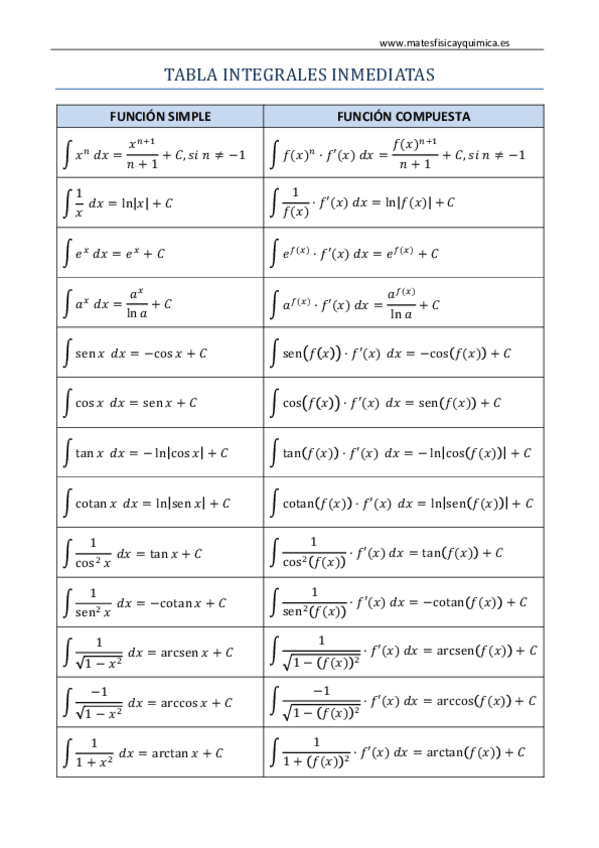 www.matesfisicayquimica.es
TABLA INTEGRALES INMEDIATAS
FUNCIÓN SIMPLE FUNCIÓN COMPUESTA
∫ xⁿ dx = xⁿ⁺¹/(n + 1) + C, si n ≠ −1 ∫ f(x)ⁿ · f′(x) dx = f(x)ⁿ⁺¹/(n + 1) + C, si n ≠ −1
∫ 1/x dx = ln|x| + C ∫ 1/f(x) · f′(x) dx = ln|f(x)| + C
∫ eˣ dx = eˣ + C ∫ e^f(x) · f′(x) dx = e^f(x) + C
∫ aˣ dx = aˣ/ln a + C ∫ a^f(x) · f′(x) dx = a^f(x)/ln a + C
∫ sen x dx = −cos x + C ∫ sen(f(x)) · f′(x) dx = −cos(f(x)) + C
∫ cos x dx = sen x + C ∫ cos(f(x)) · f′(x) dx = sen(f(x)) + C
∫ tan x dx = − ln|cos x| + C ∫ tan(f(x)) · f′(x) dx = − ln|cos(f(x))| + C
∫ cotan x dx = ln|sen x| + C ∫ cotan(f(x)) · f′(x) dx = ln|sen(f(x))| + C
∫ 1/cos² x dx = tan x + C ∫ 1/cos²(f(x)) · f′(x) dx = tan(f(x)) + C
∫ 1/sen² x dx = −cotan x + C ∫ 1/sen²(f(x)) · f′(x) dx = −cotan(f(x)) + C
∫ 1/√(1 − x²) dx = arcsen x + C ∫ 1/√(1 − (f(x))²) · f′(x) dx = arcsen(f(x)) + C
∫ −1/√(1 − x²) dx = arccos x + C ∫ −1/√(1 − (f(x))²) · f′(x) dx = arccos(f(x)) + C
∫ 1/(1 + x²) dx = arctan x + C ∫ 1/(1 + (f(x))²) · f′(x) dx = arctan(f(x)) + C